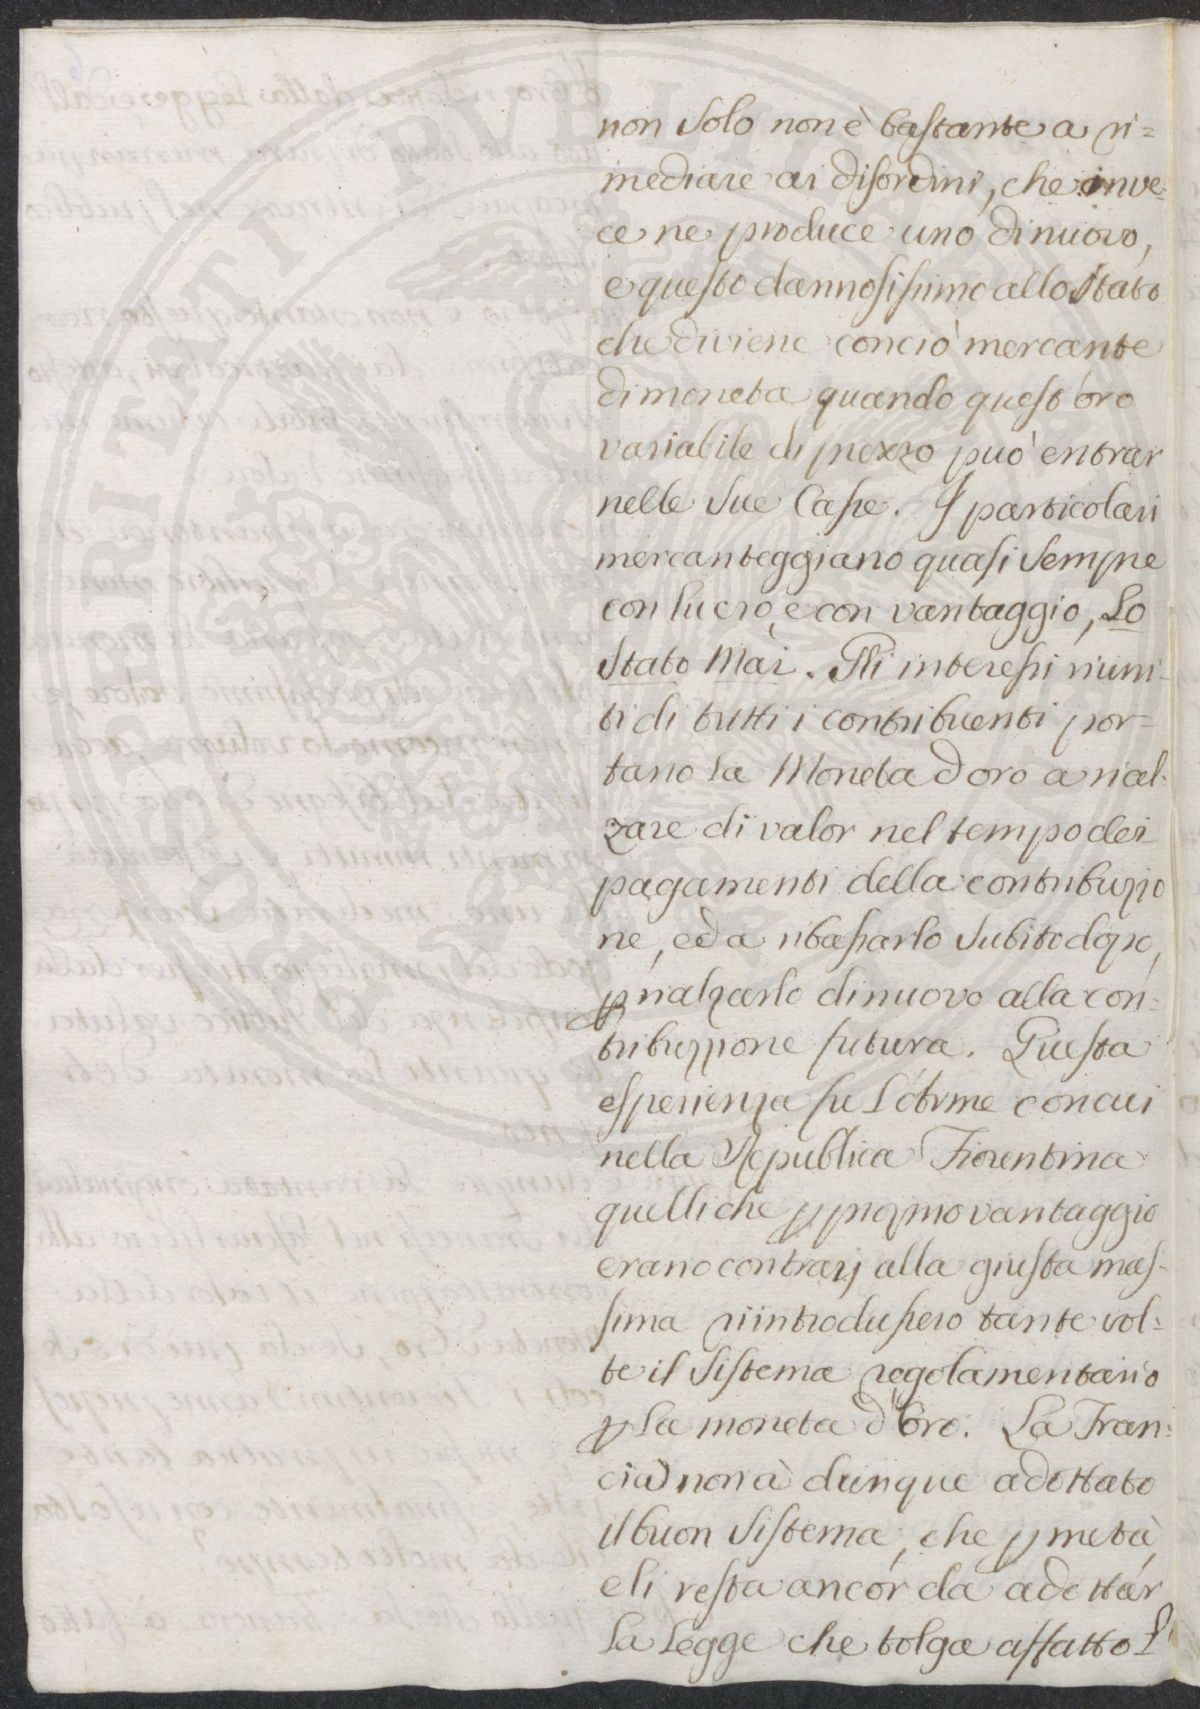 non solo non è bastante a ri=
mediare ai disordini, che inve=
ce ne produce uno di nuovo,
e questo dannosissimo allo Stato
che diviene con ciò mercante
di moneta quando quest'oro
variabile di prezzo può entrar
nelle sue Casse. I particolari
mercanteggiano quasi sempre
con lucro, e con vantaggio, Lo
Stato Mai. Gli interessi riuni=
ti di tutti i contribuenti por=
tano la Moneta d'oro a rial=
zare di valor nel tempo dei
pagamenti della contribuzio
ne, ed a ribassarlo subito dopo,
p rialzarlo di nuovo alla con=
tribuzzione futura. Questa
esperienza fu l'ottime con cui
nella Republica Fiorentina
quelli che p proprio vantaggio
erano contrarj alla giusta mas=
sima riintrodussero tante vol=
te il sistema regolamentario
p la moneta d'oro. La Fran=
cia non à dunque adottato
il buon sistema, che p metà,
e li resta ancor da adottar
la Legge che tolga affatto l'